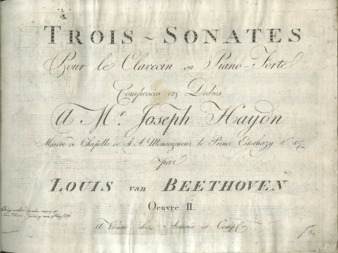 TROIS ~ SONATES
Pour le Clavecin ou Piano-Forte
Composées et Dediées
A Mr. Joseph Haydn
Maitre de Chapelle de S. A. Monseigneur le Prince Esterhazy &c. &c.
par
LOUIS van BEETHOVEN
Oeuvre II
a Vienne chez Artaria et Comp.